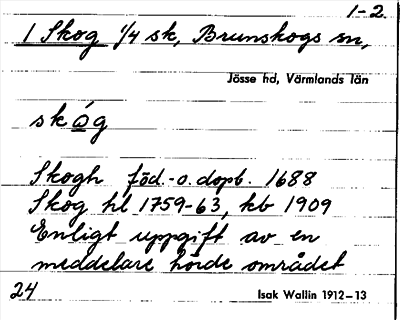 1-2.
1 Skog 1/4 sk, Brunskogs sn,
Jösse hd, Värmlands län
skǫ́g
Skogh föd.-o.dopb. 1688
Skog hl 1759-63, kb 1909
Enligt uppgift av en
meddelare hörde området
24
Isak Wallin 1912-13